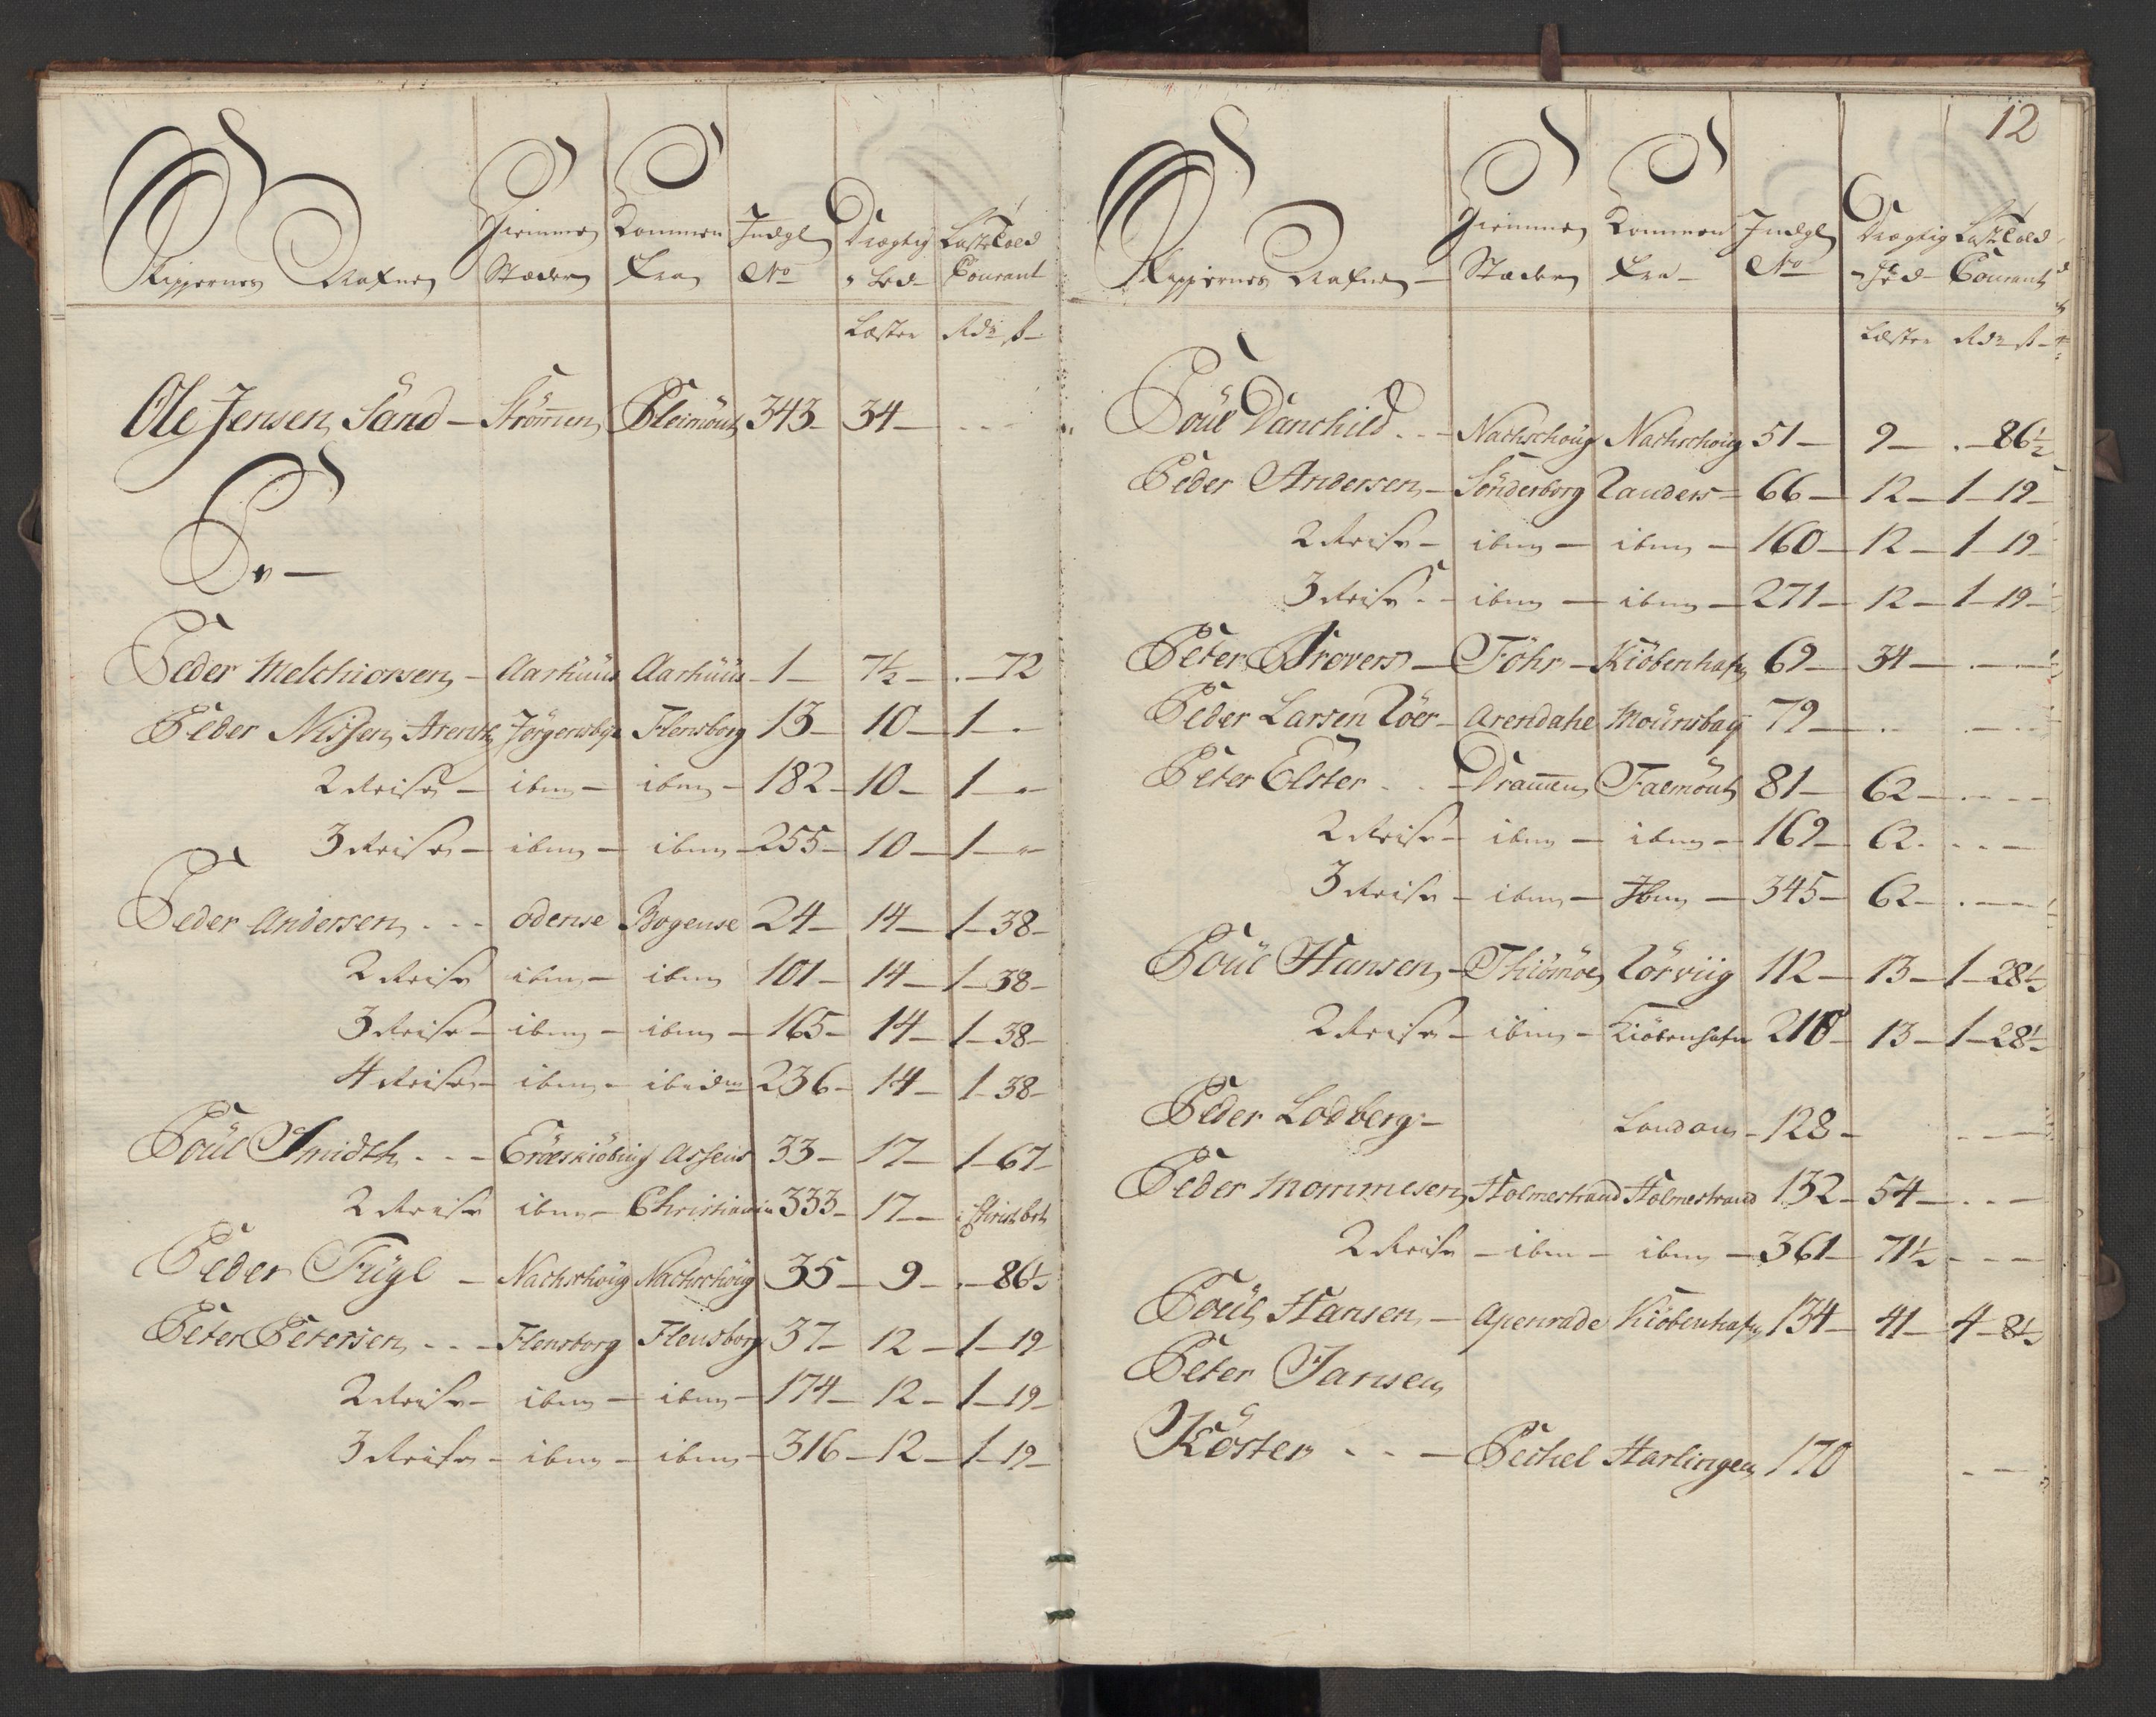 Skippernes Nafne Hiemme Kommen Indgl Drægtig Læste Told
Steder fra No hed Courant
Læster Rdr s
Ole Jensen Sand - Strömen Pleimouth 343 - 34 -
P
Peder Melchiorsen - Aarhuus Aarhuus - 1 - 7½ - . - 72
Peder Nissen Arentz Jörgensbye Flensborg 13 - 10 - 1 -
2 Reise - ibm - ibm - 182 - 10 - 1 -
3 Reise - ibm - ibm - 255 - 10 - 1 -
Peder Andersen - odense Bogense 24 - 14 - 1 - 38 -
2 Reise ibm - ibm 101 - 14 - 1 - 38 -
3 Reise - ibm - ibm - 165 - 14 - 1 - 38 -
4 Reise - ibm - ibidm 236 - 14 - 1 - 38 -
Poül Smidth - Eröeskiöbing Assens 33 - 17 - 1 - 67 -
2 Reise ibm - Christiania 333 - 17 -
Peder Fügl - Nachschoüg Nachschoüg 35 - 9 - . - 86½
Peter Petersen - Flensborg Flensborg 37 - 12 - 1 - 19 -
2 Reise - ibm - ibm - 174 - 12 - 1 - 19 -
3 Reise - ibm - ibm - 316 - 12 - 1 - 19 -
12
Skippernes Nafne - Hiemme Kommen Indgl Drægtig Læste Told
Steder fra - No hed Courant
Læster Rdr s
Poül Danchild - Nachschoüg Nachschoüg 51 - 9 - . - 86½
Peder Andersen - Sönderborg Randers - 66 - 12 - 1 - 19 -
2 Reise - ibm - ibm - 160 - 12 - 1 - 19 -
3 Reise - ibm - ibm - 271 - 12 - 1 - 19 -
Peter Prevers - Föhr - Kiöbenhafn 69 - 34 -
Peder Larsen Röer - Arendahl Moünsbay 79 -
Peter Elster - Dramen Faemöuth 81 - 62 -
2 Reise - ibm - ibm - 169 - 62 -
3 Reise - ibm - Ibm - 345 - 62 -
Poül Hansen - Thiömöe Rörviig 112 - 13 - 1 - 28½
2 Reise - ibm - Kiöbenhafn 210 - 13 - 1 - 28½
Peder Lodberg - London - 128 -
Peder Mommesen Holmestrand Holmestrand 132 - 54 -
2 Reise - ibm - ibm - 361 - 71½ -
Poül Hansen - Apenrade Kiöbenhafn 134 - 41 - 4 - 8½
Peter Jansen
Köster - Pechel Harlingen 170